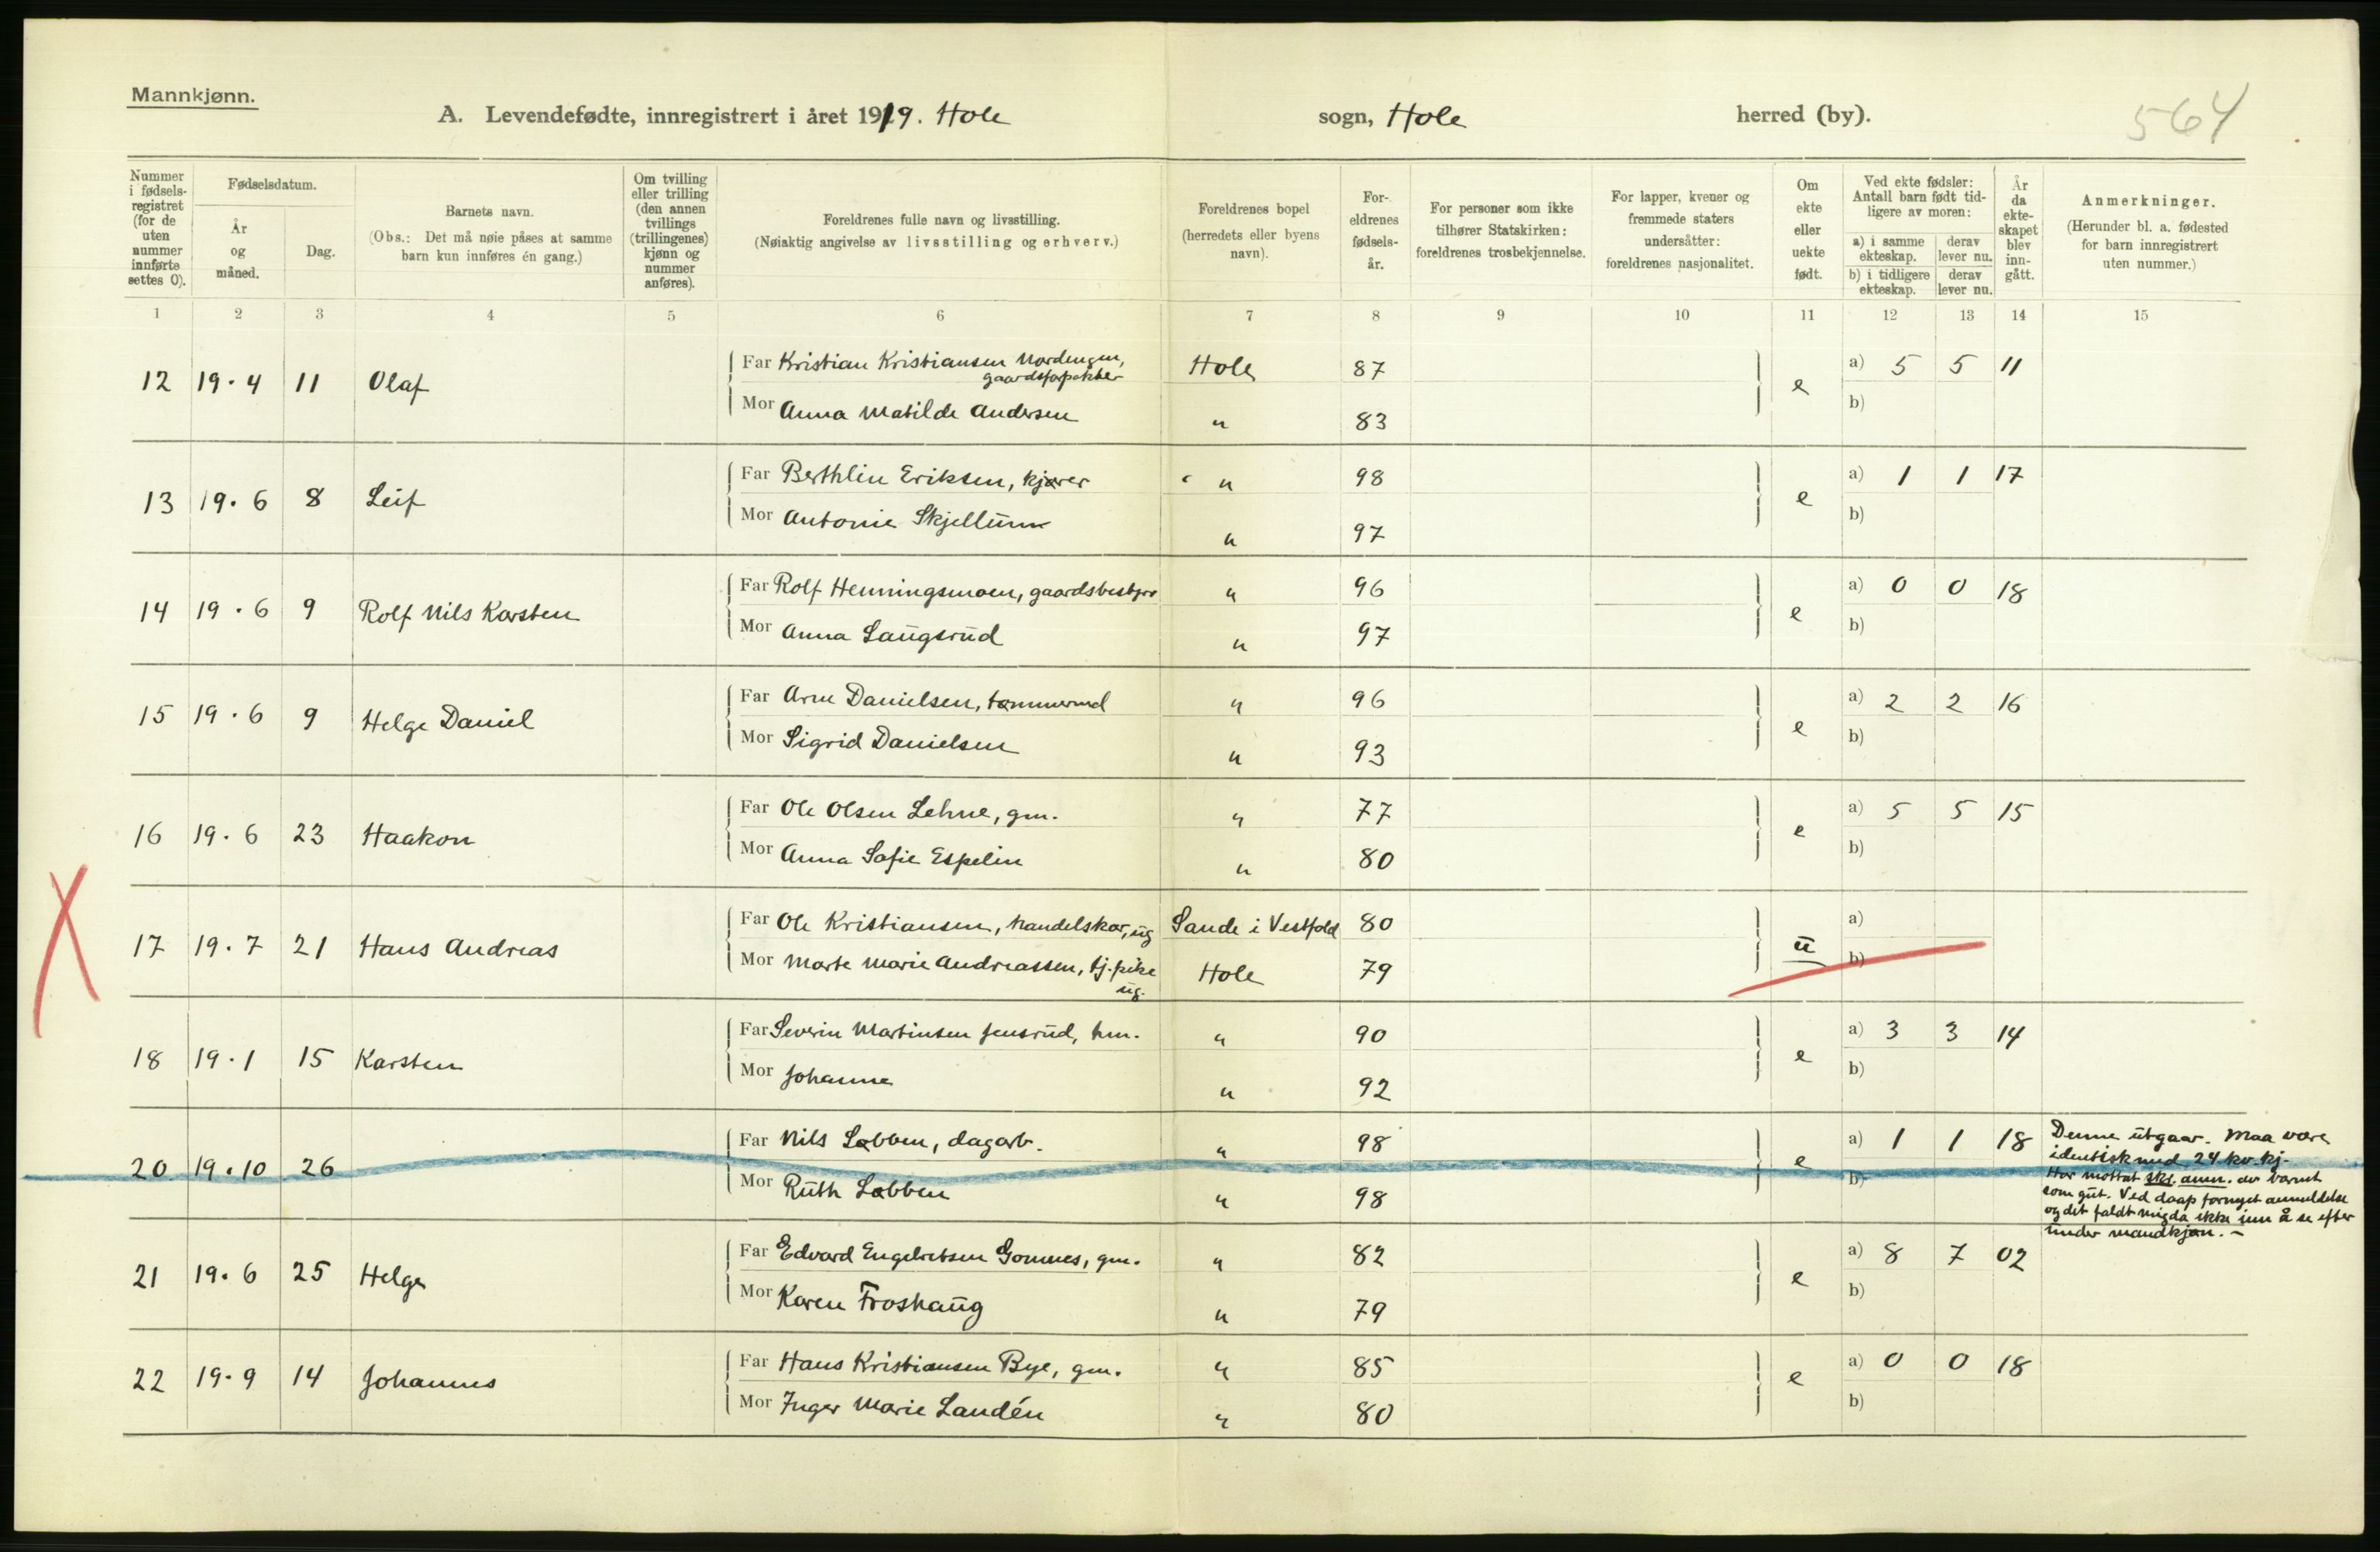 Mannkjønn.
A. Levendefødte, innregistrert i året 1919. Hole sogn, Hole herred (by).
564
Nummer i fødselsregistret (for de uten nummer innførte settes 0).
Fødselsdatum.
År og måned.
Dag.
Barnets navn.
(Obs.: Det må nøie påses at samme barn kun innføres én gang.)
Om tvilling eller trilling (den annen tvillings (trillingenes) kjønn og nummer anføres).
Foreldrenes fulle navn og livsstilling.
(Nøiaktig angivelse av livsstilling og erhverv.)
Foreldrenes bopel (herredets eller byens navn).
For-eldrenes fødsels-år.
For personer som ikke tilhører Statskirken: foreldrenes trosbekjennelse.
For lapper, kvener og fremmede staters undersåtter: foreldrenes nasjonalitet.
Om ekte eller uekte født.
Ved ekte fødsler: Antall barn født tidligere av moren:
a) i samme ekteskap.
derav lever nu.
b) i tidligere ekteskap.
derav lever nu.
År da ekteskapet blev inngått.
Anmerkninger.
(Herunder bl. a. fødested for barn innregistrert uten nummer.)
1 2 3 4 5 6 7 8 9 10 11 12 13 14 15
12 19.4 11 Olaf Far Kristian Kristiansen Nordengen, gaardsforpakter Hole 87 e a) 5 5 11
Mor Anna Matilde Andersen " 83 b)
13 19.6 8 Leif Far Berthlin Eriksen, kjører " 98 e a) 1 1 17
Mor Antonie Skjellum " 97 b)
14 19.6 9 Rolf Nils Karsten Far Rolf Henningsmoen, gaardsbestyrer " 96 e a) 0 0 18
Mor Anna Laugsrud " 97 b)
15 19.6 9 Helge Daniel Far Arne Danielsen, tømmermd " 96 e a) 2 2 16
Mor Sigrid Danielsen " 93 b)
16 19.6 23 Haakon Far Ole Olsen Lehne, gm. " 77 e a) 5 5 15
Mor Anna Sofie Espelin " 80 b)
17 19.7 21 Hans Andreas Far Ole Kristiansen, handelskar, ug Sande i Vestfold 80 u a)
Mor Marte Marie Andreassen, tj.pike ug. Hole 79 b)
18 19.1 15 Karsten Far Severin Martinsen Jensrud, hm. " 90 e a) 3 3 14
Mor Johanne " 92 b)
20 19.10 26 Far Nils Løbben, dagarb. " 98 e a) 1 1 18
Mor Ruth Løbben " 98 b)
Denne utgaar. Maa være
identisk med 24 kv.kj.
Har mottat skr. anm. av barnet
som gut. Ved daap fornyet anmeldelse
og det faldt mig da ikke inn å se efter
under mandkjøn. –
21 19.6 25 Helge Far Edvard Engebretsen Gomnes, gm. " 82 e a) 8 7 02
Mor Karen Froshaug " 79 b)
22 19.9 14 Johannes Far Hans Kristiansen Bye, gm. " 85 e a) 0 0 18
Mor Inger Marie Landén " 80 b)